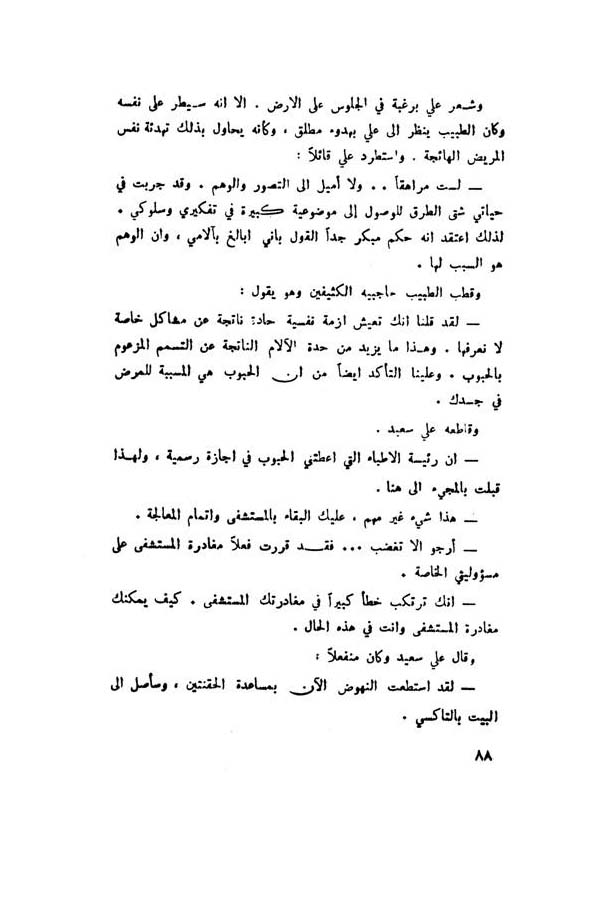 وشعر علي برغبة في الجلوس على الارض . الا انه سيطر على نفسه
وكان الطبيب ينظر الى علي بهدوء مطلق ، وكأنه يحاول بذلك تهدئة نفس
المريض الهائجة . واستطرد علي قائلاً :
— لست مراهقاً . . ولا أميل الى التصور والوهم . وقد جربت في
حياتي شتى الطرق للوصول إلى موضوعية كبيرة في تفكيري وسلوكي .
لذلك اعتقد انه حكم مبكر جداً القول باني ابالغ بآلامي ، وان الوهم
هو السبب لها .
وقطب الطبيب حاجبيه الكثيفين وهو يقول :
— لقد قلنا انك تعيش ازمة نفسية حادة ناتجة عن مشاكل خاصة
لا نعرفها . وهذا ما يزيد من حدة الآلام الناتجة عن التسمم المزعوم
بالحبوب . وعلينا التأكد ايضاً من ان الحبوب هي المسببة للمرض
في جسدك .
وقاطعه علي سعيد .
— ان رئيسة الاطباء التي اعطتني الحبوب في اجازة رسمية ، ولهذا
قبلت بالمجيء الى هنا .
— هذا شيء غير مهم ، عليك البقاء بالمستشفى واتمام المعالجة .
— أرجو الا تغضب ... فقد قررت فعلاً مغادرة المستشفى على
مسؤوليتي الخاصة .
— انك ترتكب خطأ كبيراً في مغادرتك المستشفى . كيف يمكنك
مغادرة المستشفى وانت في هذه الحال .
وقال علي سعيد وكان منفعلاً :
— لقد استطعت النهوض الآن بمساعدة الحقنتين ، وسأصل الى
البيت بالتاكسي .
٨٨